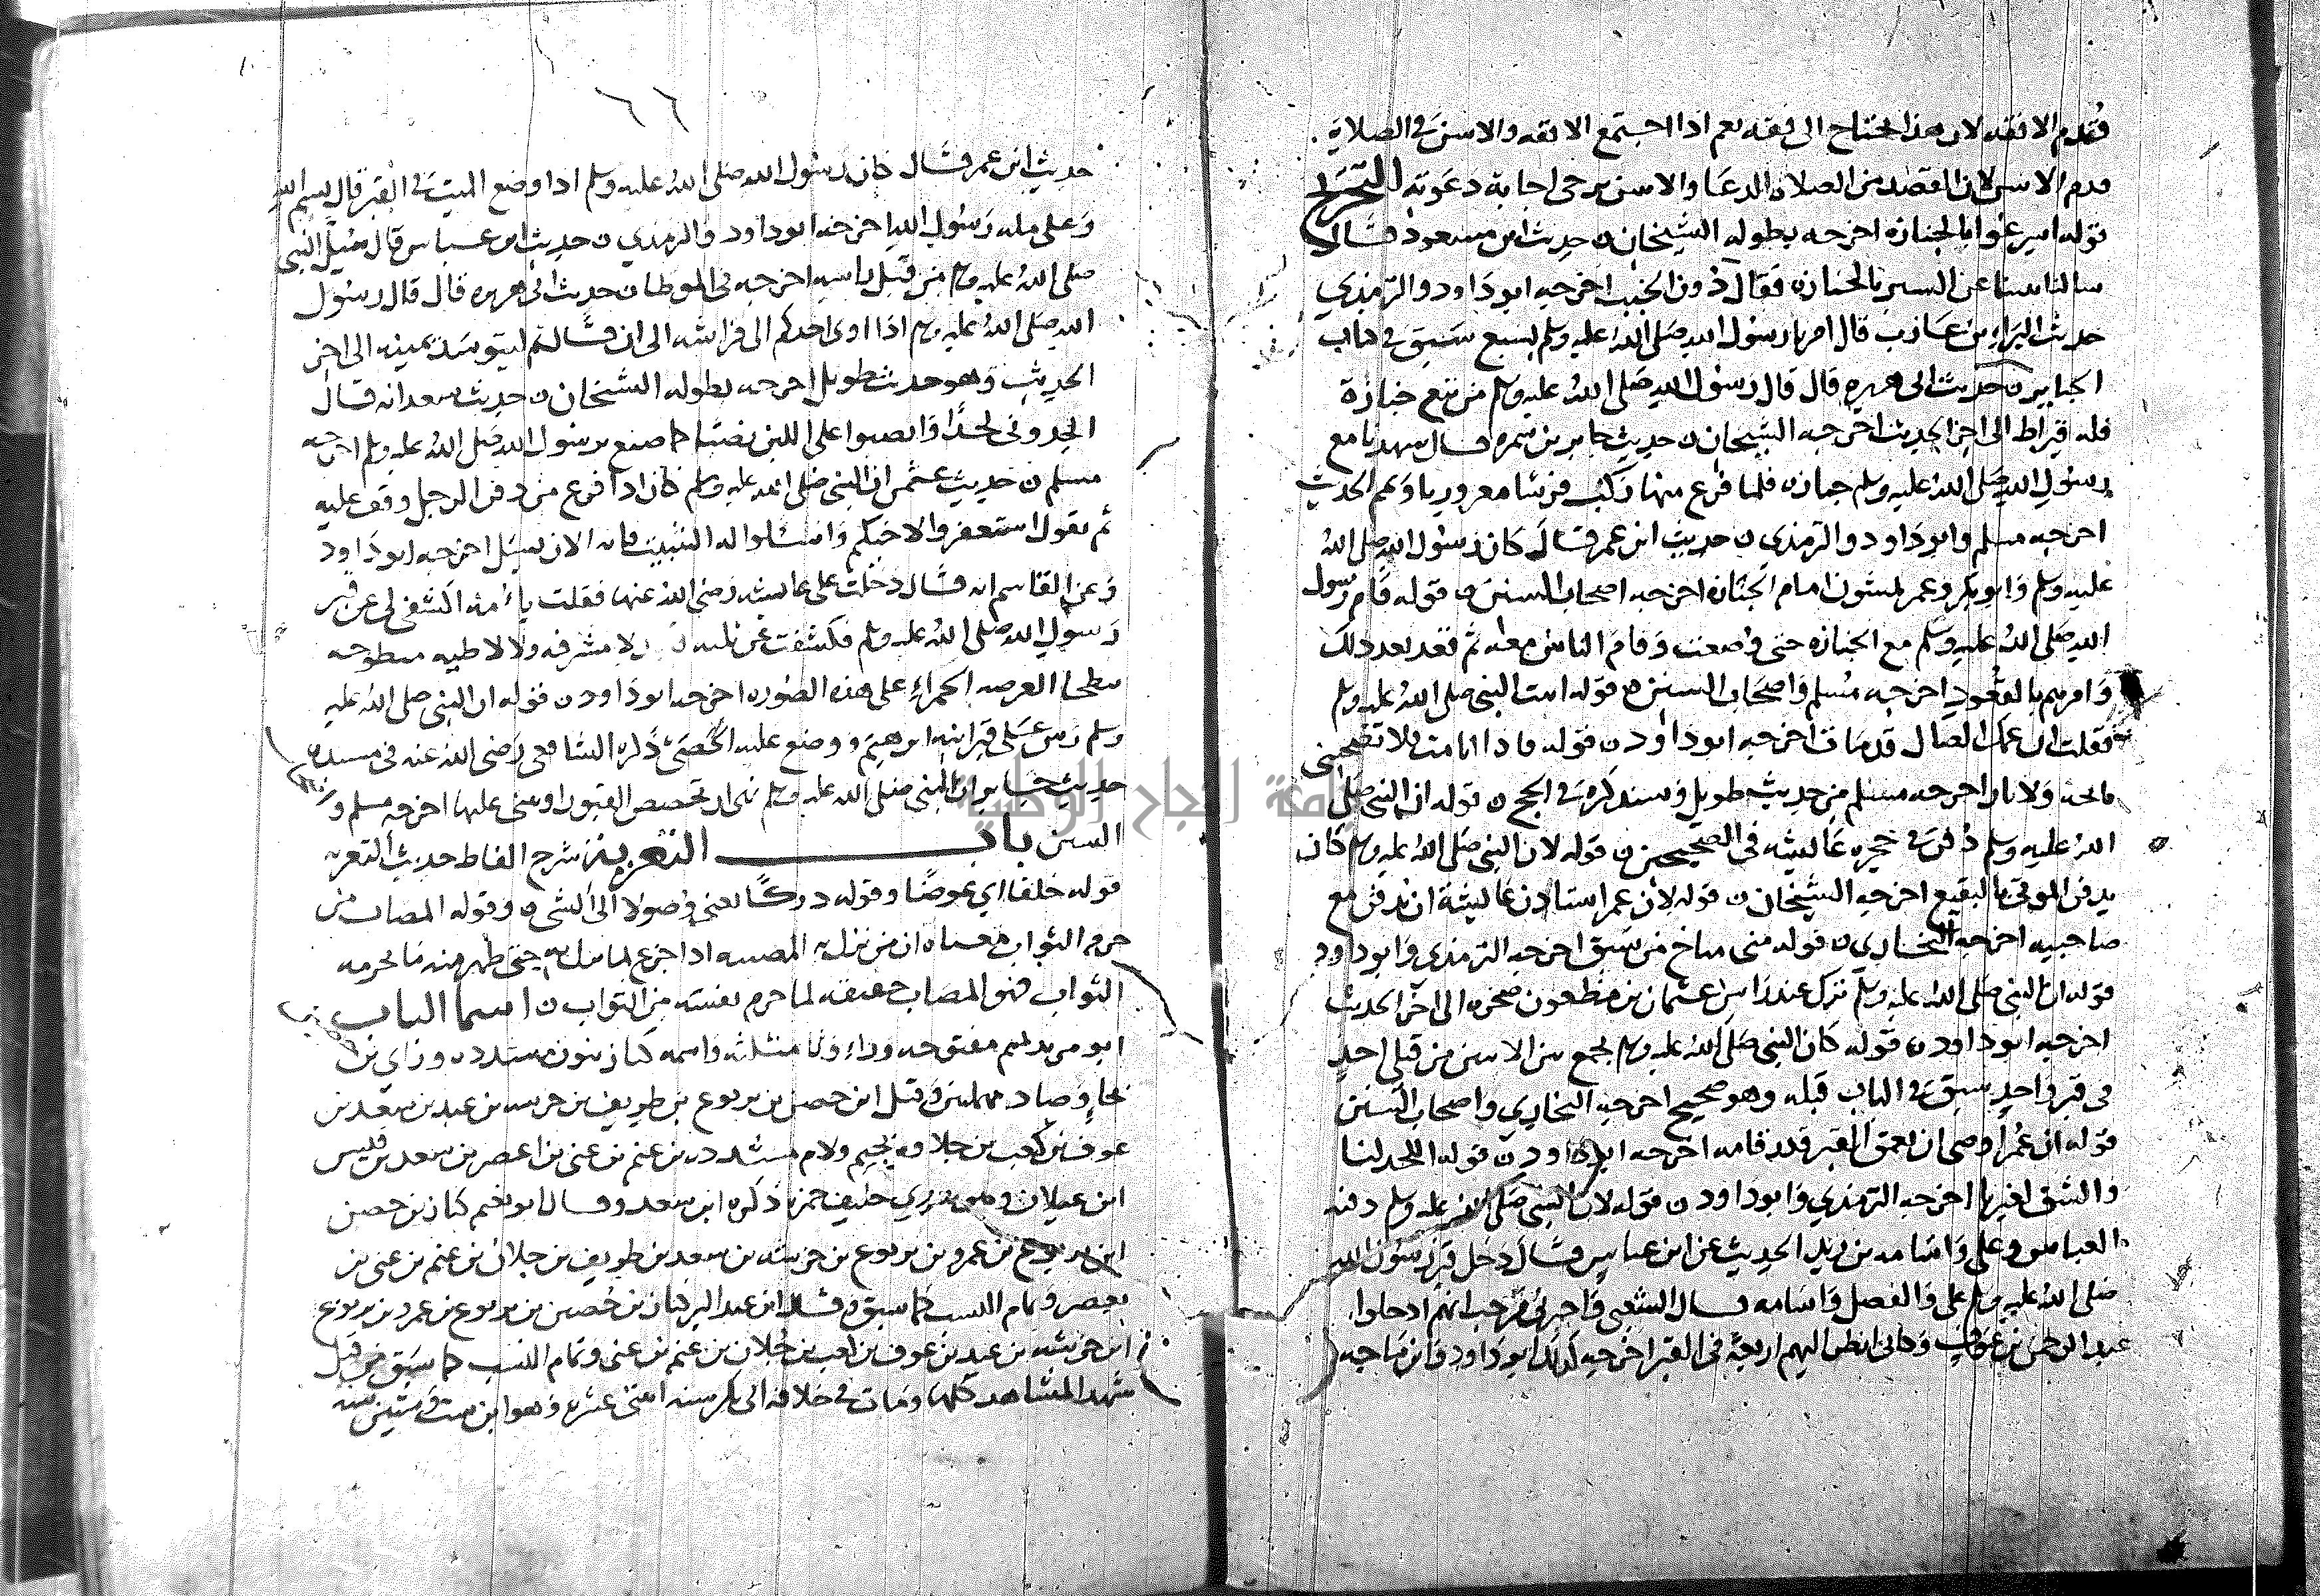 فقدم الافقه لان هذا يحتاج الى فقه نعم اذا اجتمع الافقه والاسن في الصلاة
قدم الاسن لان القصد من الصلاة الدعا والاسن يرجى اجابة دعوته التخريج
قوله اسرعوا بالجنازة اخرجه بطوله الشيخان حديث ابن مسعود قال
سالنا نبينا عن السير بالجنازه فقال دون الخبب اخرجه ابو داود والترمذي
حديث البراء بن عازب قال امرنا رسول الله صلى الله عليه وسلم بسبع سبق في باب
الجنايز حديث ابي هريره قال قال رسول الله صلى الله عليه وسلم من تبع جنازة
فله قيراط الى اخر الحديث اخرجه الشيخان حديث جابر بن سمره قال شهدنا مع
رسول الله صلى الله عليه وسلم جنازه فلما فرغ منها ركب فرسا معروريا وتمم الحديث
اخرجه مسلم وابو داود والترمذي حديث ابن عمر قال كان رسول الله صلى الله
عليه وسلم وابو بكر وعمر يمشون امام الجنازه اخرجه اصحاب السنن قوله قام رسول
الله صلى الله عليه وسلم مع الجنازه حتى وضعت وقام الناس معه ثم قعد بعد ذلك
وامرهم بالقعود اخرجه مسلم واصحاب السنن قوله اتيت النبي صلى الله عليه وسلم
فقلت ان عمك الضال قد مات اخرجه ابو داود قوله فاذا انا مت فلا تصحبني
نائحه ولا نار اخرجه مسلم من حديث طويل وسنذكره في الحج قوله ان النبي صلى
الله عليه وسلم دفن في حجره عائشه في الصحيحين قوله لان النبي صلى الله عليه وسلم كان
يدفن الموتى بالبقيع اخرجه الشيخان قوله لان عمر استاذن عائشة ان يدفن مع
صاحبيه اخرجه البخاري قوله منى مناخ من سبق اخرجه الترمذي وابو داود
قوله ان النبي صلى الله عليه وسلم ترك عند راس عثمان بن مظعون صخره الى اخر الحديث
اخرجه ابو داود قوله كان النبي صلى الله عليه وسلم يجمع بين الاثنين من قتلى احد
في قبر واحد سبق في الباب قبله وهو صحيح اخرجه البخاري واصحاب السنن
قوله ان عمر اوصى ان يعمق القبر قدر قامه اخرجه ابو داود قوله اللحد لنا
والشق لغيرنا اخرجه الترمذي وابو داود قوله لان النبي صلى الله عليه وسلم دفنه
العباس وعلي واسامه بن زيد الحديث عن ابن عباس قال دخل قبر رسول الله
صلى الله عليه وسلم علي والفضل واسامه قال الشعبي واخبرني مرحب انهم ادخلوا
عبد الرحمن بن عوف وكاني انظر اليهم اربعة في القبر اخرجه كذلك ابو داود وابن ماجه
٦٦
حديث ابن عمر قال كان رسول الله صلى الله عليه وسلم اذا وضع الميت في القبر قال بسم الله
وعلى مله رسول الله اخرجه ابو داود والترمذي حديث ابن عباس قال سل النبي
صلى الله عليه وسلم من قبل راسه اخرجه في الموطا حديث ابي هريره قال قال رسول
الله صلى الله عليه وسلم اذا اوى احدكم الى فراشه الى ان قال ثم ليتوسد يمينه الى اخر
الحديث وهو حديث طويل اخرجه بطوله الشيخان حديث سعد انه قال
الحدوني لحدا وانصبوا علي اللبن نصبا كما صنع برسول الله صلى الله عليه وسلم اخرجه
مسلم حديث عثمن ان النبي صلى الله عليه وسلم كان اذا فرغ من دفن الرجل وقف عليه
ثم يقول استغفروا لاخيكم واسئلوا له التثبيت فانه الان يسئل اخرجه ابو داود
وعن القاسم انه قال دخلت على عائشه رضي الله عنها فقلت يا امه اكشفي لي عن قبر
رسول الله صلى الله عليه وسلم فكشفت عن ثلثه لا مشرفه ولا لاطيه مبطوحه
ببطحا العرصه الحمراء على هذه الصوره اخرجه ابو داود قوله ان النبي صلى الله عليه
وسلم رش على قبر ابنه ابرهيم ووضع عليه الحصى ذكره الشافعي رضي الله عنه في مسنده
حديث جابر ان النبي صلى الله عليه وسلم نهى ان تجصص القبور او يبنى عليها اخرجه مسلم و
السنن باب التعزية شرح الفاظ حديث التعزيه
قوله خلفا اي عوضا وقوله دركا يعني وصولا الى الشي وقوله المصاب من
حرم الثواب معناه ان من نزلت به المصيبه اذا جزع لما نزل به حتى ظهر منه ما يحرمه
الثواب فهو المصاب حقيقه لما حرم نفسه من الثواب اسما الباب
ابو مرثد بميم مفتوحه وراء وثا مثلثه واسمه كناز بنون مشدده وزاي بن
بحاء وصاد مهملتين وقيل ابن حصن بن يربوع بن طريف بن خرشه بن عبيد بن سعد بن
عوف بن كعب بن جلان بجيم ولام مشدده بن غنم بن غني بن اعصر بن سعد بن قيس
ابن عيلان وهو بدري حليف حمزه ذكره ابن سعد وقال ابو نعيم كناز بن حصن
ابن يربوع بن عمرو بن يربوع بن خرشه بن سعد بن طريف بن جلان بن غنم بن غني بن
يعصر وتمام النسب كما سبق وقال ابن عبد البر كناز بن حصين بن يربوع بن عمرو بن يربوع
ابن خرشه بن عبيد بن عوف بن كعب بن جلان بن غنم بن غني وتمام النسب كما سبق من قبل
شهد المشاهد كلها ومات في خلافه ابي بكر سنه اثنتي عشره وهو ابن ست وستين سنه
جامعة النجاح الوطنية